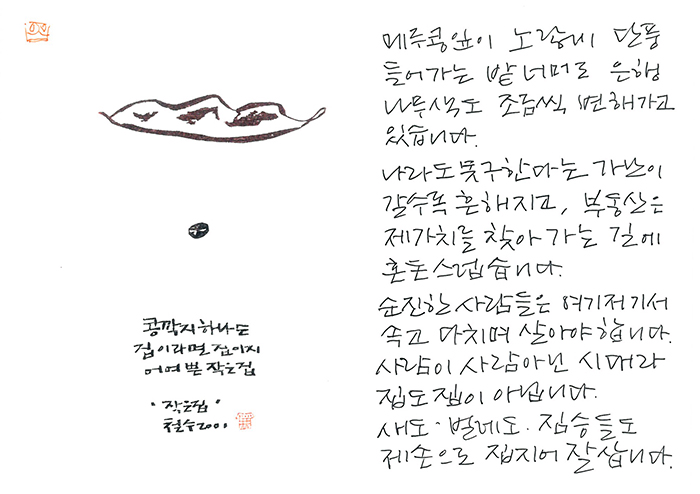 콩깍지 하나도
집이라면 집이지
어여쁜 작은 집
"작은집"
철수 2001
메주콩잎이 노랗게 단풍
들어가는 밭 너머로 은행
나무색도 조금씩 변해가고
있습니다.
나라도 못구한다는 가난이
갈수록 흔해지고, 부동산은
제가치를 찾아 가는 길에
혼돈스럽습니다.
순진한 사람들은 여기저기서
속고 다치며 살아야합니다.
사람이 사람아닌 시대라
집도 집이 아닙니다.
새도·벌레도·짐승들도
제손으로 집지어 잘삽니다.